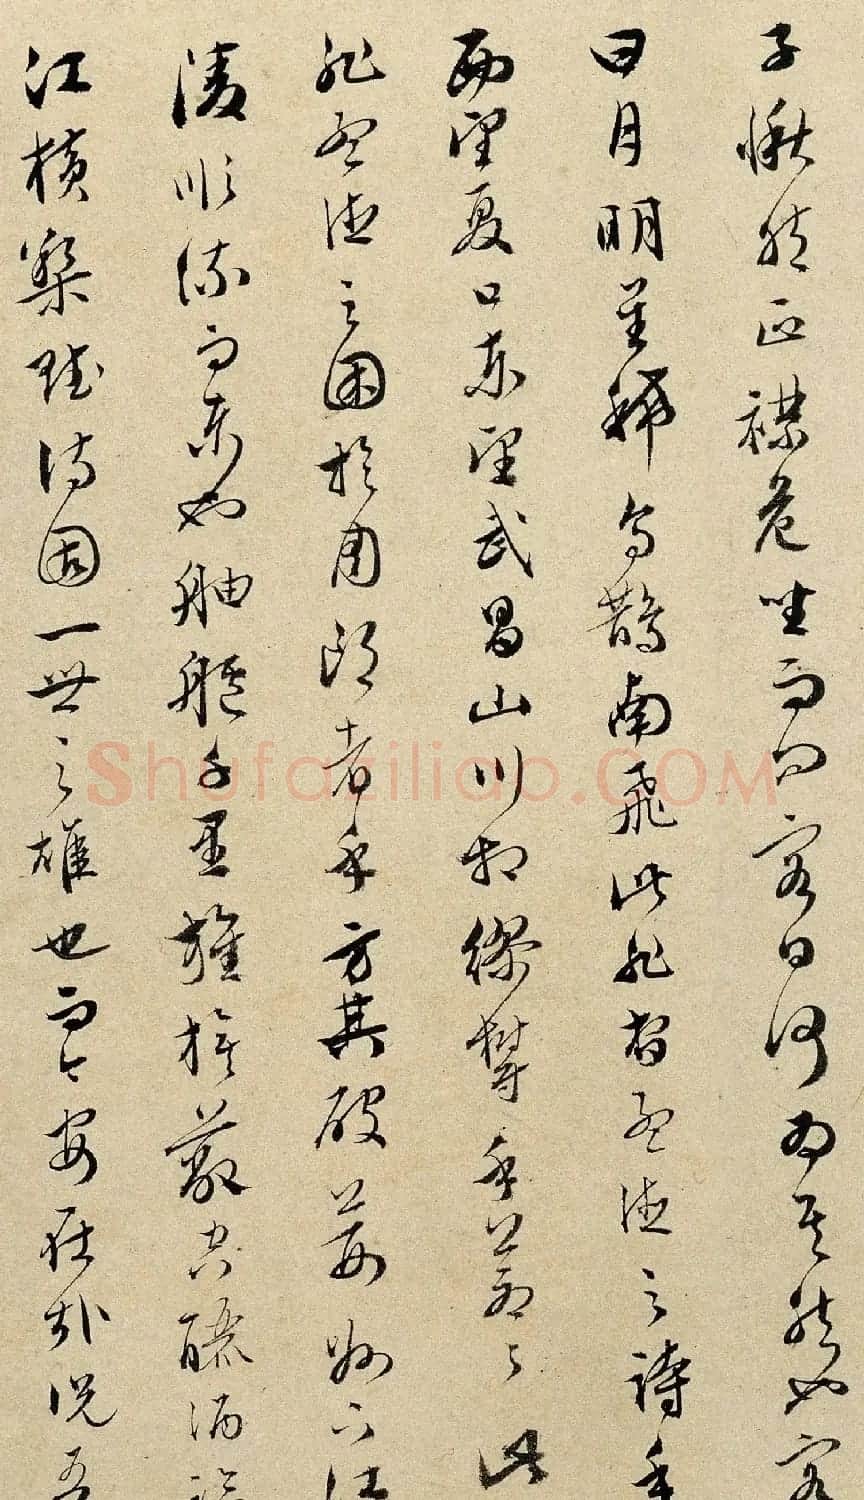 子愀然正襟危坐而問客曰何為其然也客
曰月明星稀烏鵲南飛此非曹孟德之詩乎
西望夏口東望武昌山川相繆鬱乎蒼々此
非孟德之困於周郎者乎方其破荊州下江
陵順流而東也舳艫千里旌旗蔽空釃酒臨
江橫槊賦詩固一世之雄也而今安在哉況吾
Shufaziliao.COM